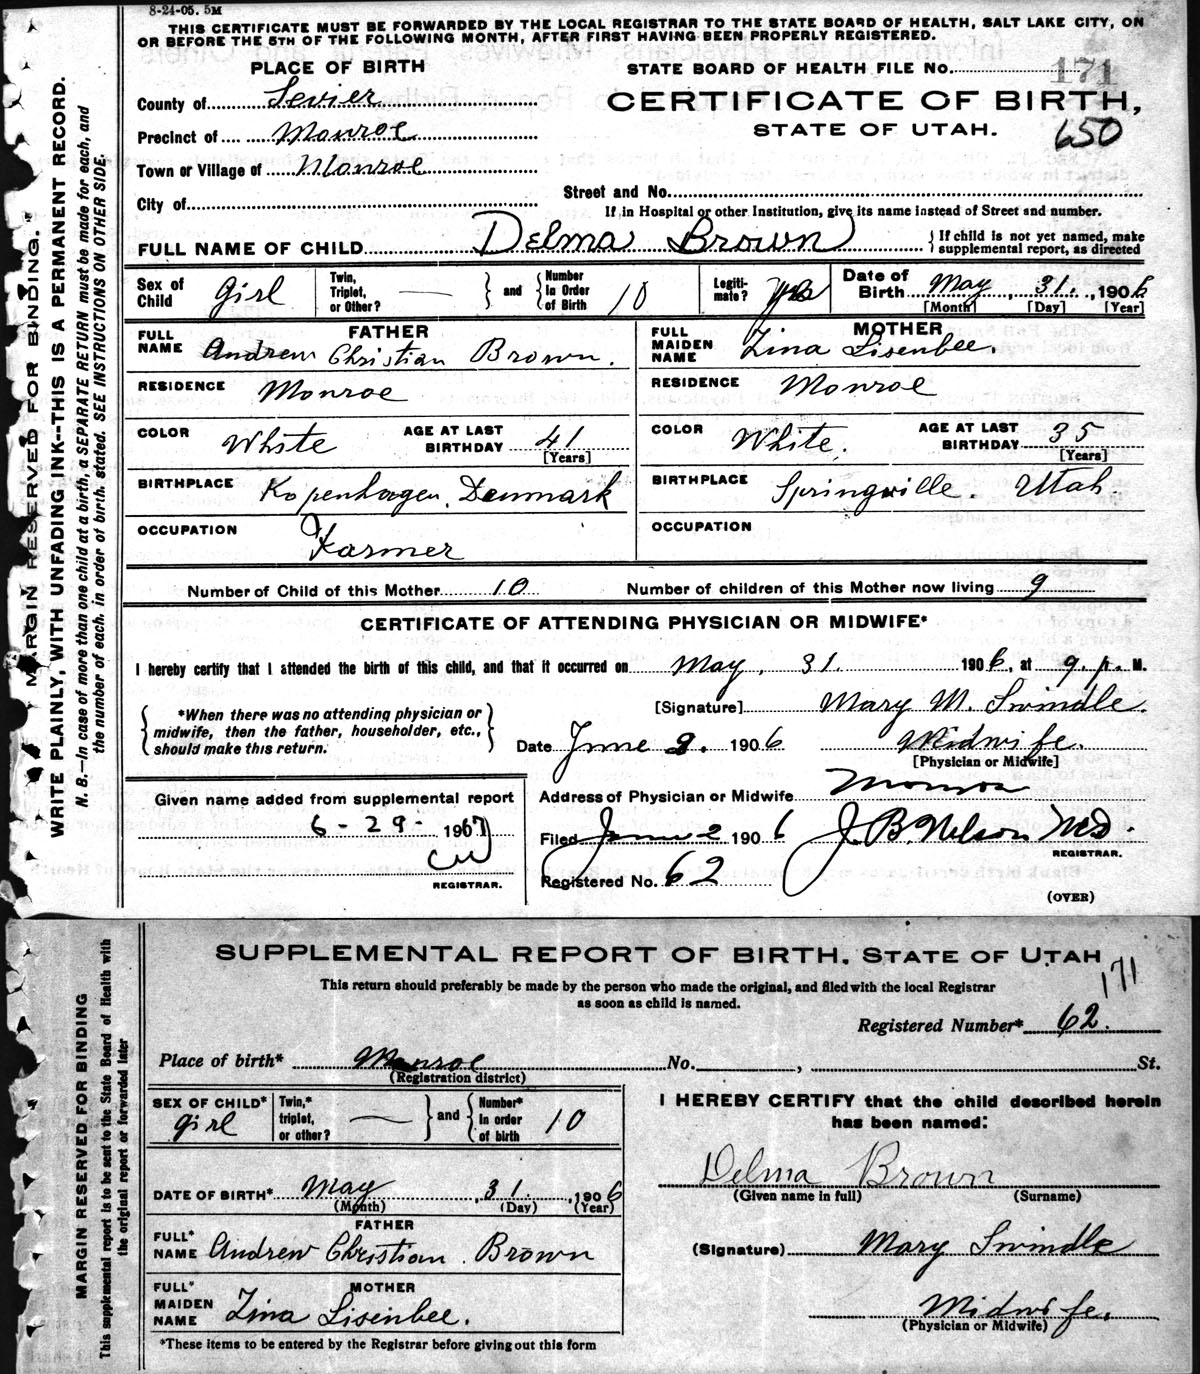 8-24-05. 5M
THIS CERTIFICATE MUST BE FORWARDED BY THE LOCAL REGISTRAR TO THE STATE BOARD OF HEALTH, SALT LAKE CITY, ON
OR BEFORE THE 5TH OF THE FOLLOWING MONTH, AFTER FIRST HAVING BEEN PROPERLY REGISTERED.
PLACE OF BIRTH
STATE BOARD OF HEALTH FILE No. 171
County of Sevier
CERTIFICATE OF BIRTH,
Precinct of Monroe
STATE OF UTAH.
650
Town or Village of Monroe
Street and No.
City of
If in Hospital or other Institution, give its name instead of Street and number.
FULL NAME OF CHILD Delma Brown
{ If child is not yet named, make
supplemental report, as directed
Sex of Child girl
Twin, Triplet, or Other? — } and { Number in Order of Birth 10
Legiti-mate? yes
Date of Birth May, 31., 1906
[Month] [Day] [Year]
FATHER
FULL NAME Andrew Christian Brown.
MOTHER
FULL MAIDEN NAME Zina Lisenbee.
RESIDENCE Monroe
RESIDENCE Monroe
COLOR White AGE AT LAST BIRTHDAY 41
[Years]
COLOR White. AGE AT LAST BIRTHDAY 35
[Years]
BIRTHPLACE Kopenhagen, Denmark
BIRTHPLACE Springville. Utah.
OCCUPATION Farmer
OCCUPATION
Number of Child of this Mother 10 Number of children of this Mother now living 9
CERTIFICATE OF ATTENDING PHYSICIAN OR MIDWIFE*
I hereby certify that I attended the birth of this child, and that it occurred on May, 31. 1906, at 9 p. M.
[Signature] Mary M. Swindle.
{ *When there was no attending physician or
midwife, then the father, householder, etc.,
should make this return. }
Date June 2. 1906 Midwife.
[Physician or Midwife]
Given name added from supplemental report
6-29-1907
CW
REGISTRAR.
Address of Physician or Midwife Monroe
Filed June 2 1906 J. B. Nelson M.D.
REGISTRAR.
Registered No. 62
(OVER)
MARGIN RESERVED FOR BINDING.
WRITE PLAINLY, WITH UNFADING INK--THIS IS A PERMANENT RECORD.
N. B.—In case of more than one child at a birth, a SEPARATE RETURN must be made for each, and
the number of each, in order of birth, stated. SEE INSTRUCTIONS ON OTHER SIDE.
SUPPLEMENTAL REPORT OF BIRTH, STATE OF UTAH
171
This return should preferably be made by the person who made the original, and filed with the local Registrar
as soon as child is named.
Registered Number* 62.
Place of birth* Monroe No. , St.
(Registration district)
SEX OF CHILD* girl
Twin,* triplet, or other? — } and { Number* in order of birth 10
DATE OF BIRTH* May, 31., 1906
(Month) (Day) (Year)
FATHER
FULL* NAME Andrew Christian Brown
MOTHER
FULL* MAIDEN NAME Zina Lisenbee.
*These items to be entered by the Registrar before giving out this form
I HEREBY CERTIFY that the child described herein
has been named:
Delma Brown
(Given name in full) (Surname)
(Signature) Mary Swindle
Midwife.
(Physician or Midwife)
MARGIN RESERVED FOR BINDING
This supplemental report is to be sent to the State Board of Health with
the original report or forwarded later